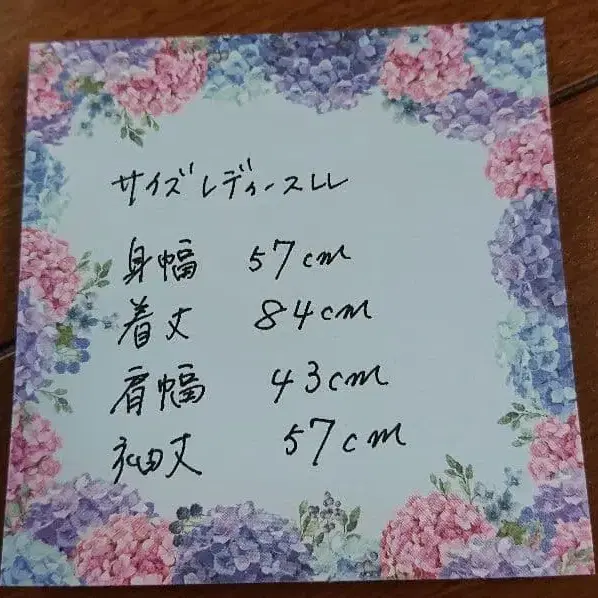 サイズレディースLL
身幅 57cm
着丈 84cm
肩幅 43cm
袖丈 57cm